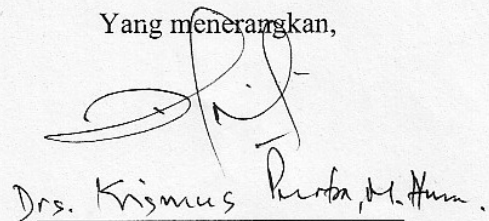 Yang menerangkan,
Drs. Krismus Purba, M. Hum.